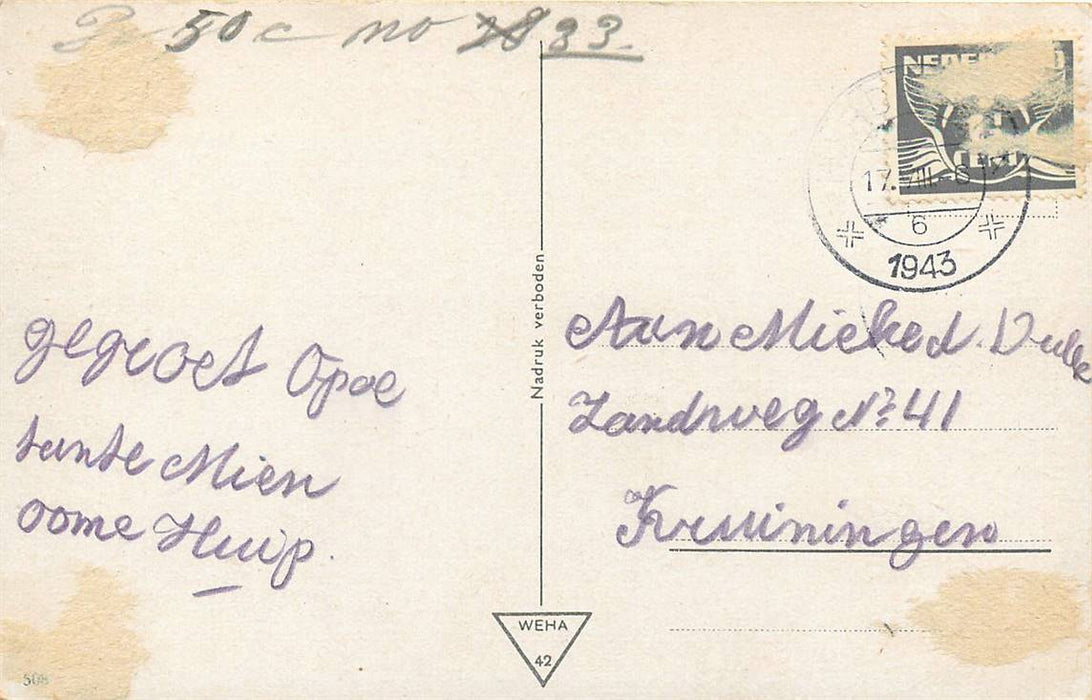 50 c no 33.
NEDERLAND
CENT
6
1943
gegroet Opoe
tante Mien
oome Huip.
Nadruk verboden
Aan Mieke d.
Zandweg No 41
Kruiningen
WEHA
42
508